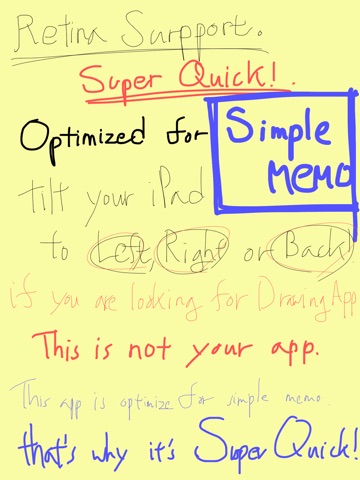 Retina Surpport.
Super Quick!.
Optimized for Simple MEMO
tilt your iPad
to Left, Right or Back!
if you are looking for Drawing App
This is not your app.
This app is optimize for simple memo.
that's why it's Super Quick!